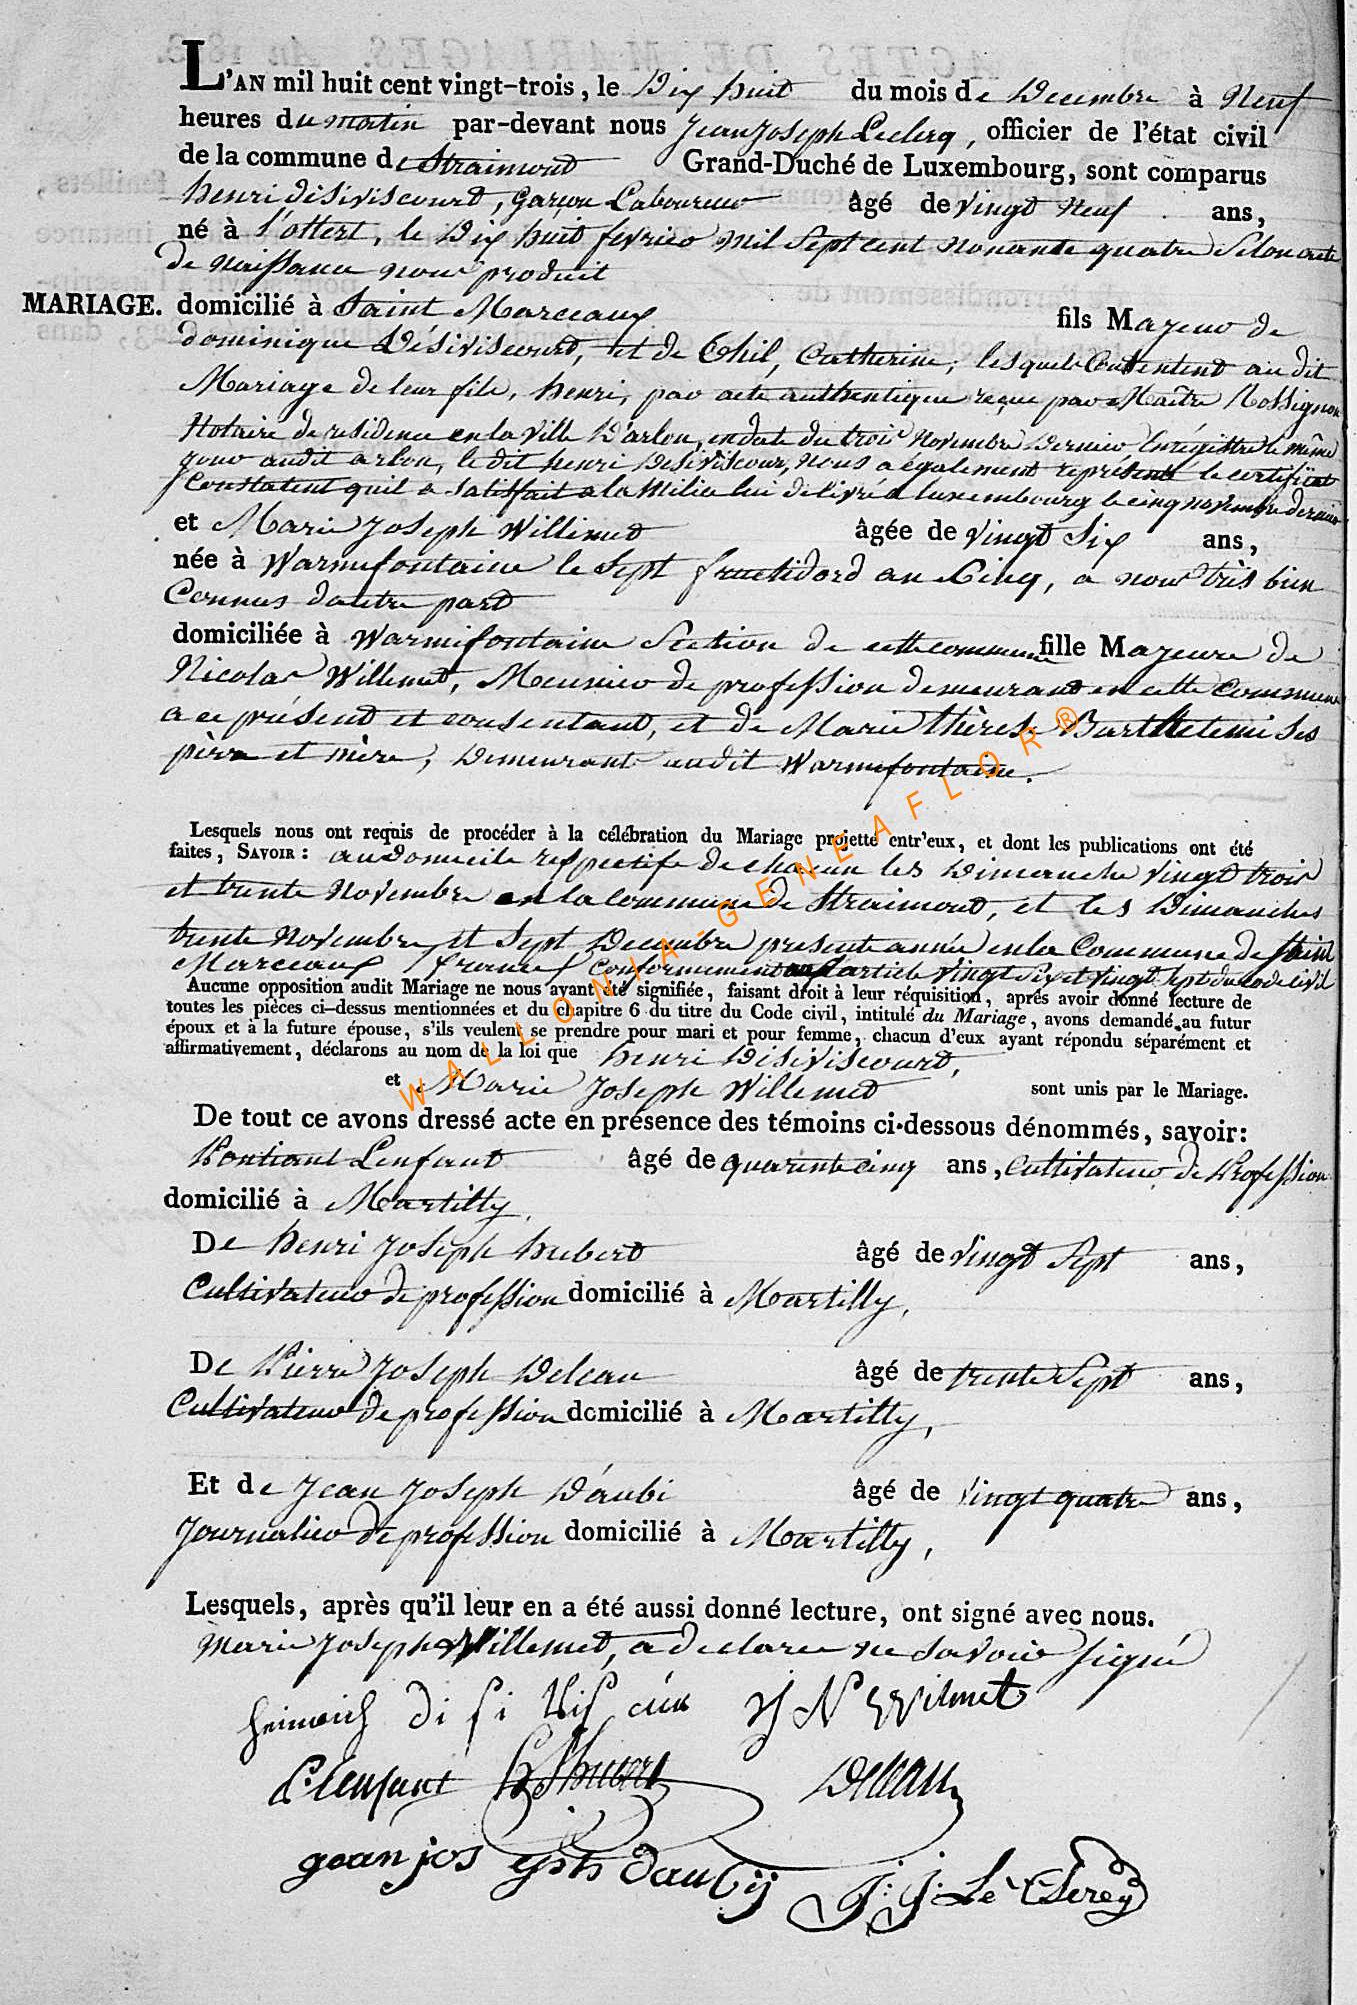 L'AN mil huit cent vingt-trois, le Dix huit du mois de Decembre à Neuf
heures du matin par-devant nous Jean Joseph Leclerq, officier de l'état civil
de la commune de Straimont Grand-Duché de Luxembourg, sont comparus
henri disiviscourt, Garçon Laboureur âgé de vingt Neuf ans,
né à l'ottert, le Dix huit fevrier mil Sept cent nonante quatre Selon acte
de naissance nous produit
MARIAGE. domicilié à Saint Marceaux fils Majeur de
dominique Désiviscourt, et de Thil, Catherine, lesquels Consentent au dit
Mariage de leur fils, henri, par acte authentique reçue par Maître Rossignon
Notaire de residence en la ville D'arlon, en date du trois Novembre Dernier, Enrégistré le même
jour audit arlon, le dit henri Desiviscour, nous a également représenté le certificat
Constatent quil a satisfait a la Milice lui delivré a luxembourg le cinq novembre dernier
et Marie Joseph Willemet âgée de vingt Six ans,
née à Warmifontaine le Sept fructidord an Cinq, a nous très bien
Connus dautre part
domiciliée à Warmifontaine Section de cette commune fille Majeure de
Nicolas Willemet, Meunier de profession demeurant en cette Commune
a ce présent et consentant, et de Marie thèrése Barthelemi Ses
père et mère, Demeurant audit Warmifontaine.
Lesquels nous ont requis de procéder à la célébration du Mariage projetté entr'eux, et dont les publications ont été
faites, SAVOIR : au domicile respectife de chacun les Dimanche vingt trois
et trente Novembre en la commune de Straimont, et les Dimanches
trente Novembre et Sept Decembre presente année en la Commune de Saint
Marceaux france Conformement au l'article Vingt Six et Vingt Sept du code civil
Aucune opposition audit Mariage ne nous ayant été signifiée, faisant droit à leur réquisition, aprés avoir donné lecture de
toutes les pièces ci-dessus mentionnées et du chapitre 6 du titre du Code civil, intitulé du Mariage, avons demandé au futur
époux et à la future épouse, s'ils veulent se prendre pour mari et pour femme, chacun d'eux ayant répondu séparément et
affirmativement, déclarons au nom de la loi que henri Disiviscourt,
et Marie Joseph Willemet sont unis par le Mariage.
De tout ce avons dressé acte en présence des témoins ci-dessous dénommés, savoir:
Pontiant Lenfant âgé de quarante cinq ans, Cultivateur de Profession
domicilié à Martilly,
De henri Joseph hubert âgé de vingt Sept ans,
Cultivateur de profession domicilié à Martilly,
De Pierre Joseph Deleau âgé de trente Sept ans,
Cultivateur de profession domicilié à Martilly,
Et de Jean Joseph D'aubi âgé de vingt quatre ans,
Journalier de profession domicilié à Martilly,
Lesquels, après qu'il leur en a été aussi donné lecture, ont signé avec nous.
Marie Joseph Willemet, a declaree ne savoir signé
heinrich di si vis cür N Wilmet
P. lenfant hJ hubert Deleau
gean jos daubij J: J: Le Clercq
WALLONIA-GENEAFLOR®